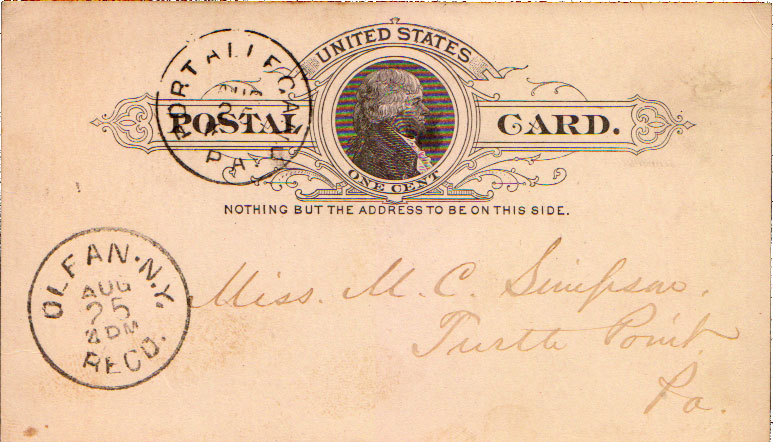 UNITED STATES
POSTAL CARD.
ONE CENT
NOTHING BUT THE ADDRESS TO BE ON THIS SIDE.
PORT ALLEGANY
AUG
25
PA
OLEAN. N.Y.
AUG
25
4 PM
RECD.
Miss. M. C. Simpson.
Turtle Point
Pa.